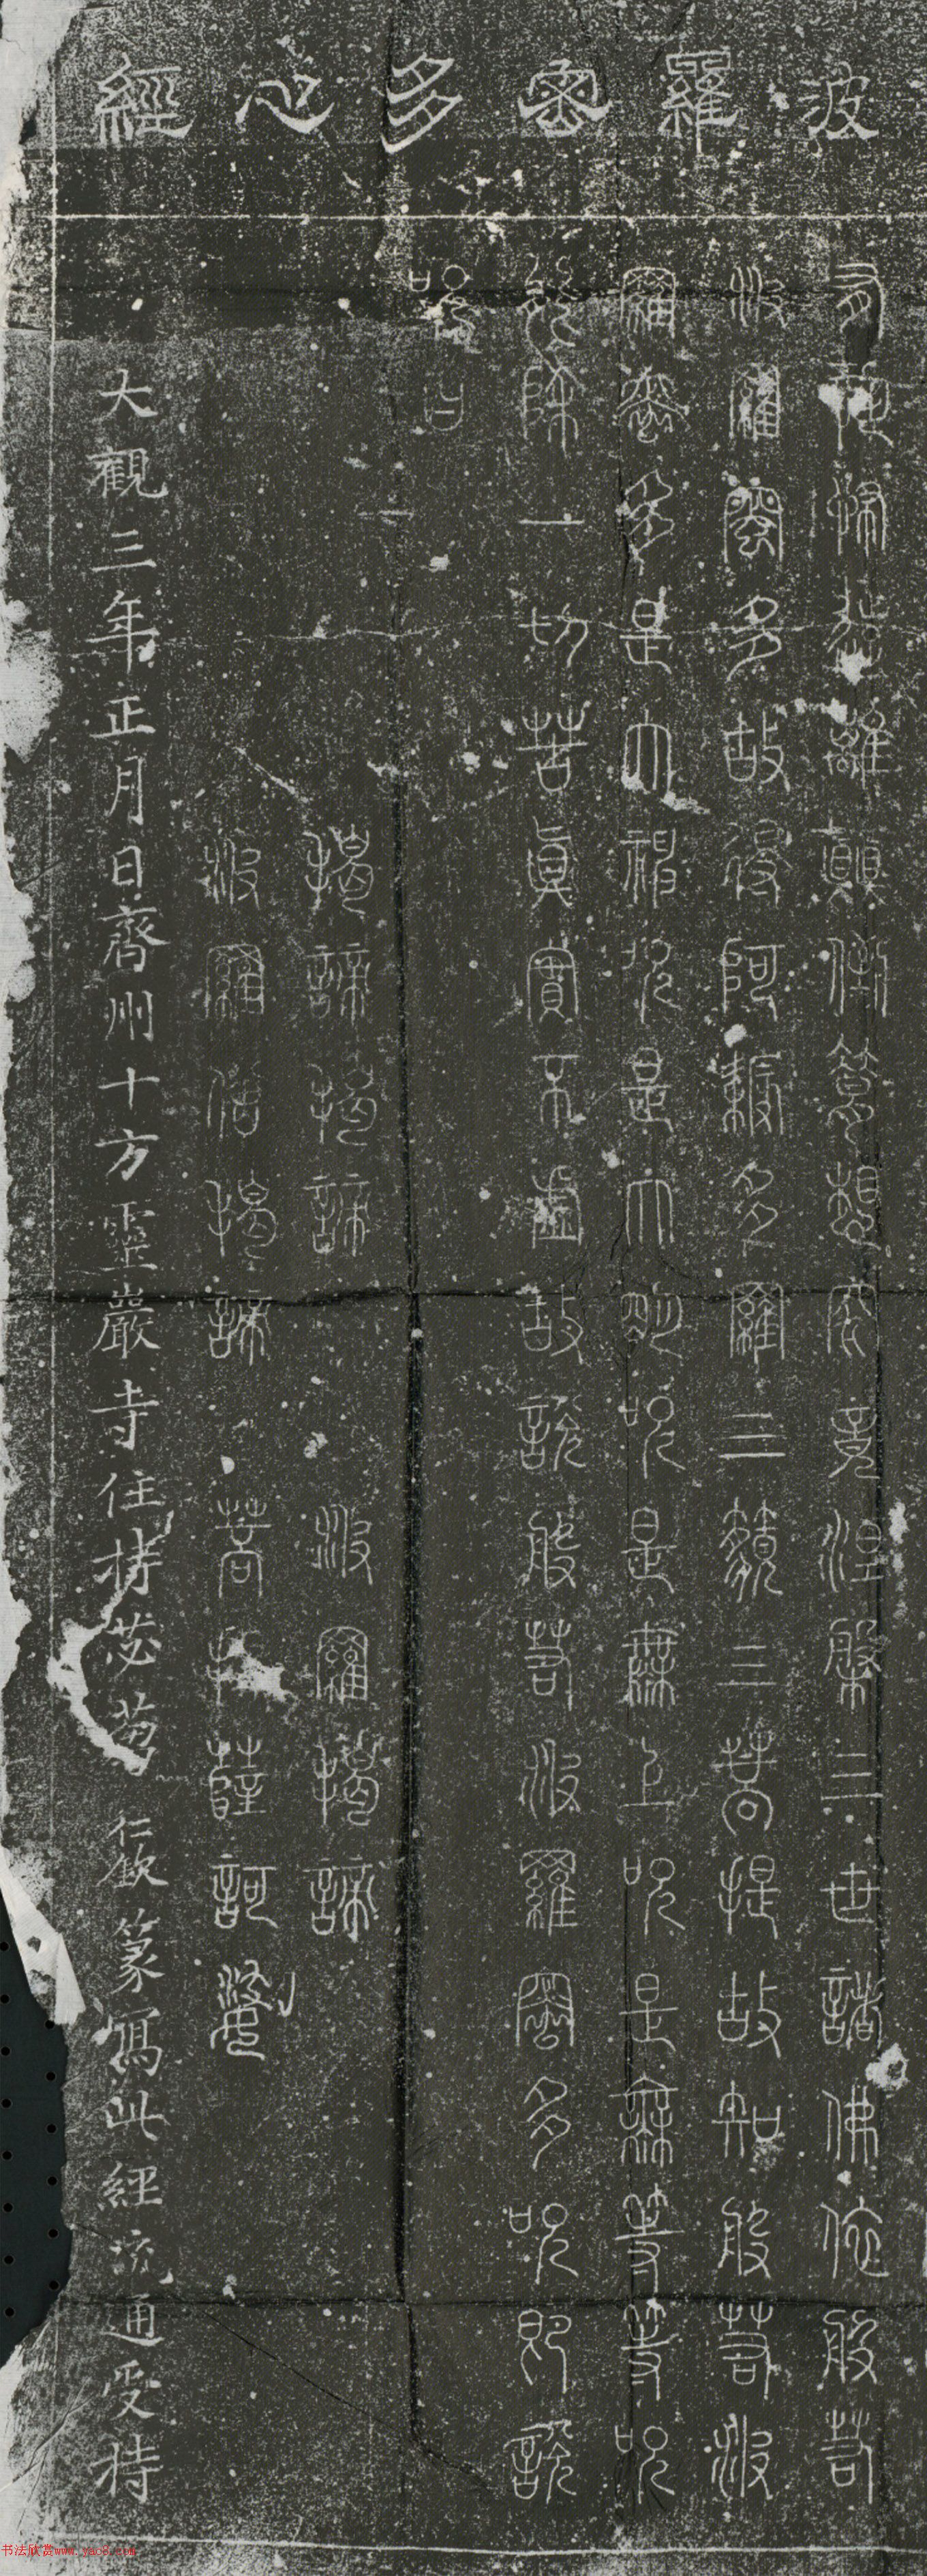 波羅蜜多心經
有恐怖遠離顛倒夢想究竟涅槃三世諸佛依般若
波羅蜜多故得阿耨多羅三藐三菩提故知般若波
羅蜜多是大神呪是大明呪是無上呪是無等等呪
能除一切苦真實不虛故說般若波羅蜜多呪即說
呪曰
揭諦揭諦 波羅揭諦
波羅僧揭諦 菩提薩訶婆
大觀三年正月日齊州十方靈巖寺住持苾蒭 仁欽篆寫此經流通受持
书法欣赏www.yac8.com